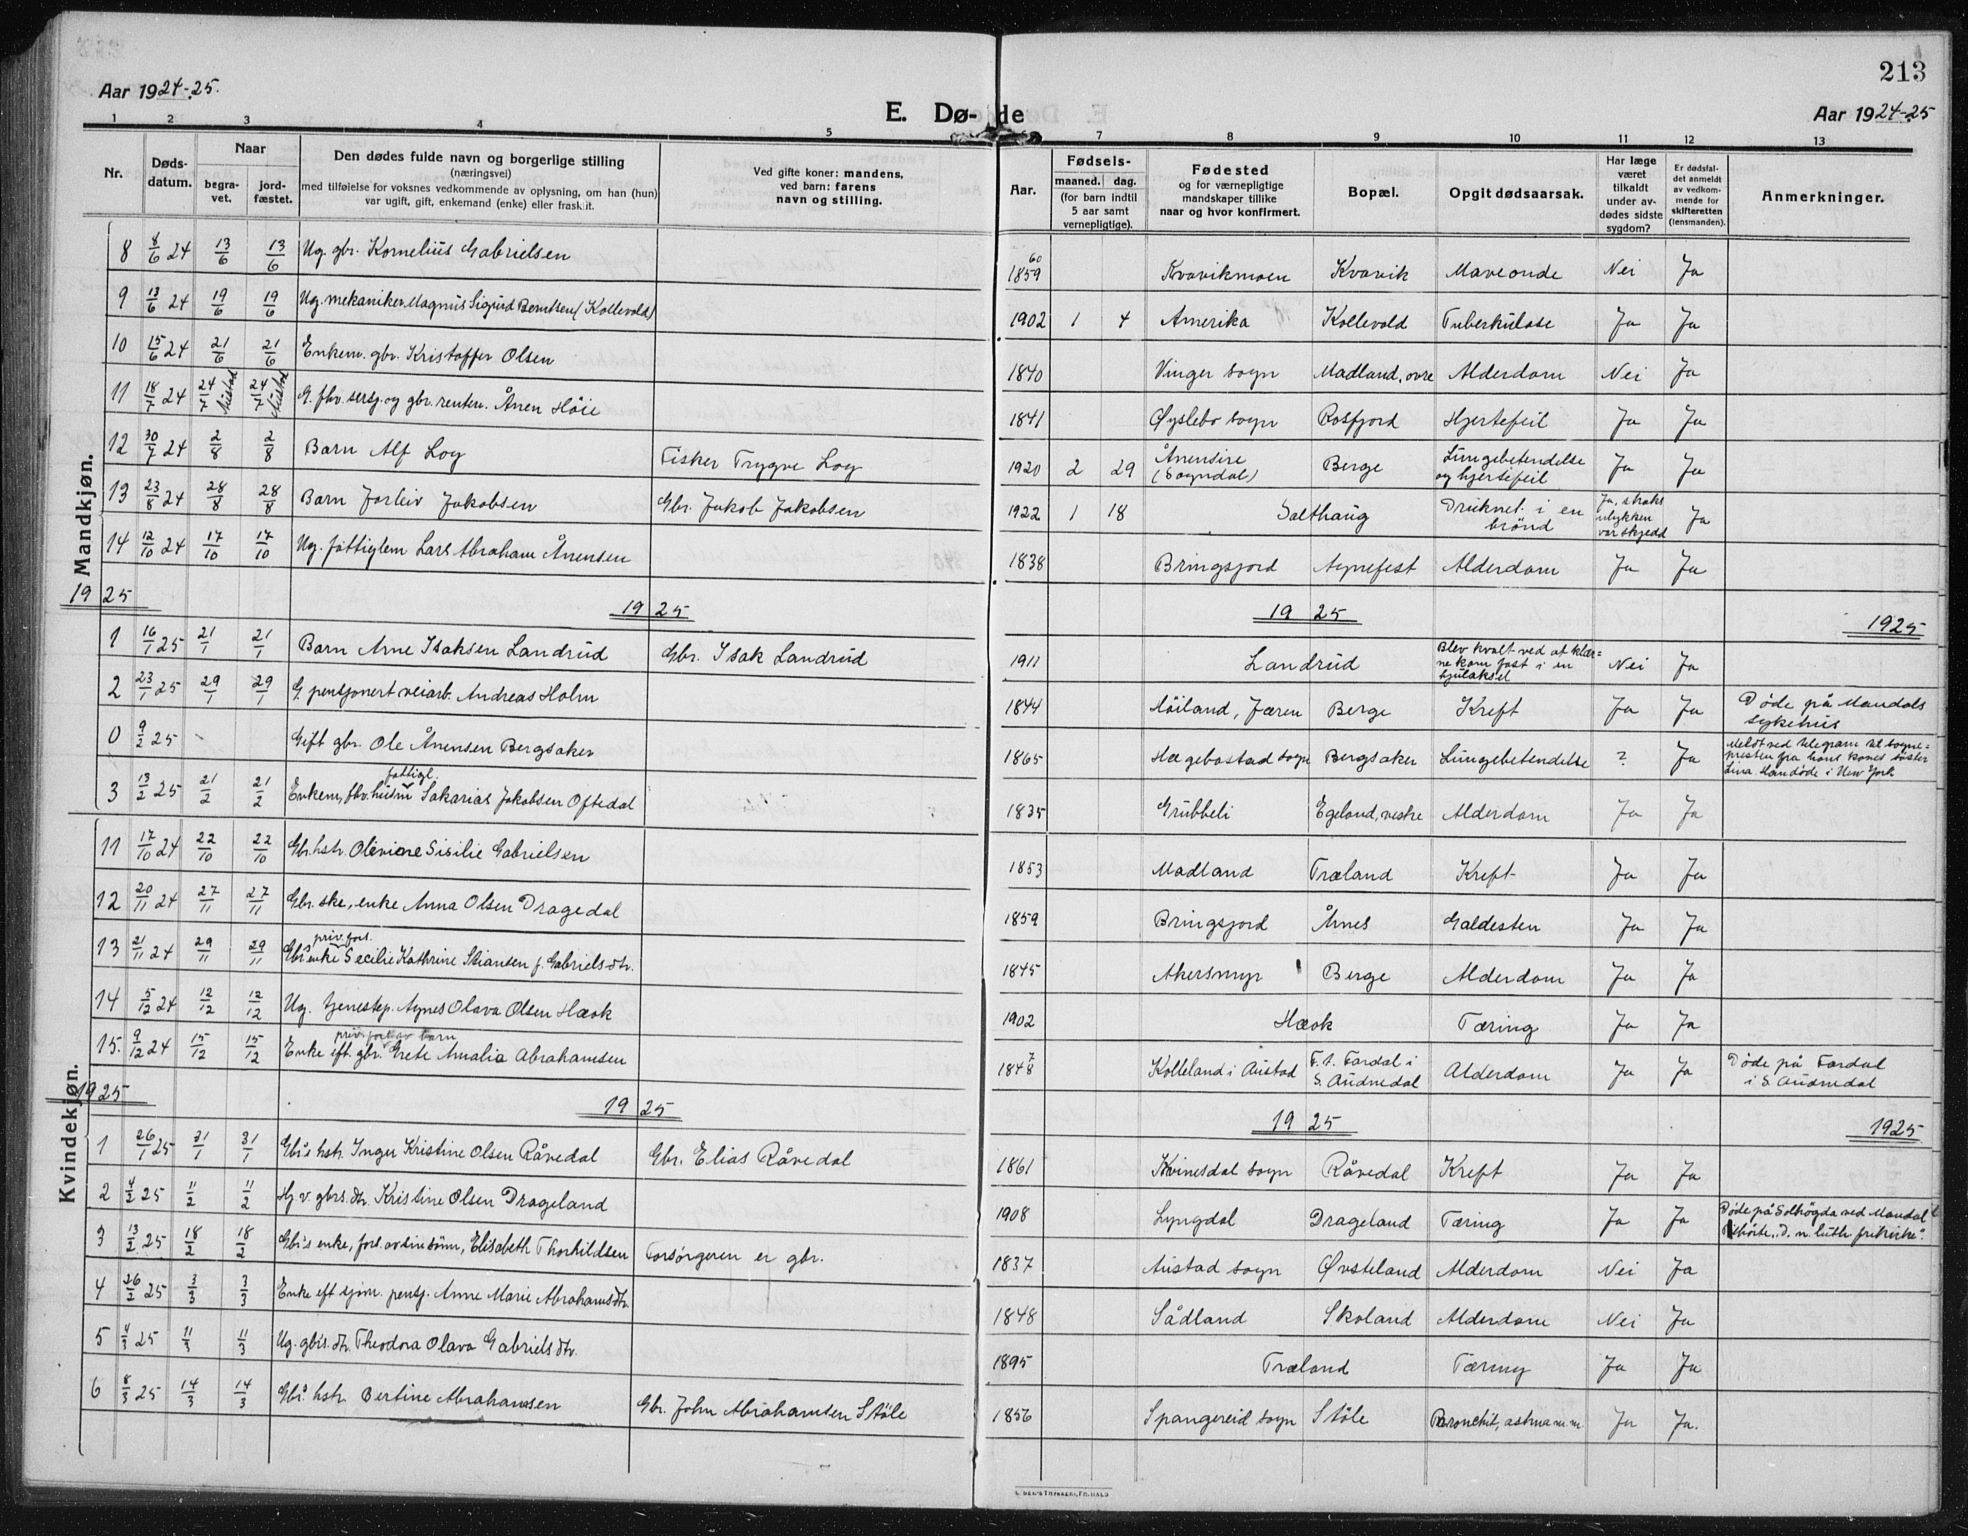 213
Aar 1924-25.
E. Dø- de
Aar 1924-25
1 2 3 4 5 7 8 9 10 11 12 13
Nr.
Døds-
datum.
Naar
begra-
vet.
jord-
fæstet.
Den dødes fulde navn og borgerlige stilling
(næringsvei)
med tilføielse for voksnes vedkommende av oplysning, om han (hun)
var ugift, gift, enkemand (enke) eller fraskilt.
Ved gifte koner: mandens,
ved barn: farens
navn og stilling.
Aar.
Fødsels-
maaned. dag.
(for barn indtil
5 aar samt
vernepligtige).
Fødested
og for værnepligtige
mandskaper tillike
naar og hvor konfirmert.
Bopæl.
Opgit dødsaarsak.
Har læge
været
tilkaldt
under av-
dødes sidste
sygdom?
Er dødsfal-
det anmeldt
av vedkom-
mende for
skifteretten
(lensmanden).
Anmerkninger.
Mandkjøn.
8 8/6 24 13/6 13/6 Ug. gbr. Kornelius Gabrielsen 1859 60 Kvavikmoen Kvavik Maveonde Nei Ja
9 13/6 24 19/6 19/6 Ug. mekaniker Magnus Sigurd Berntsen (Kollevold) 1902 1 4 Amerika Kollevold Tuberkulose Ja Ja
10 15/6 24 21/6 21/6 Enkem. gbr. Kristoffer Olsen 1840 Vinger sogn Madland, øvre Alderdom Nei Ja
11 18/7 24 24/7 Austad 24/7 Austad G. fhv. sersj. og gbr. renten. Ånen Høie 1841 Øyslebø sogn Rosfjord Hjertefeil Ja Ja
12 30/7 24 2/8 2/8 Barn Alf Log Fisker Trygve Log 1920 2 29 Ånensire (Sogndal) Berge Lungebetendelse og hjertefeil Ja Ja
13 23/8 24 28/8 28/8 Barn Torleiv Jakobsen Gbr. Jakob Jakobsen 1922 1 18 Salthaug Druknet i en brønd Ja, straks ulykken var skjedd Ja
14 12/10 24 17/10 17/10 Ug. fattiglem Lars Abraham Ånensen 1838 Bringsjord Agnefest Alderdom Ja Ja
1925 1925 1925 1925
1 16/1 25 21/1 21/1 Barn Arne Isaksen Landrud Gbr. Isak Landrud 1911 Landrud Blev kvalt ved at klær- ne kom fast i en hjulaksel Nei Ja
2 23/1 25 29/1 29/1 G. pensjonert veiarb. Andreas Holm 1844 Høiland, Jæren Berge Kreft Ja Ja Døde på Mandals sykehus
0 9/2 25 - Gift gbr. Ole Ånensen Bergsaker 1865 Hægebostad sogn Bergsaker Lungebetendelse ? Ja Meldt ved telegram til sogne- presten fra hans kones søster Lina Han døde i New York
3 13/2 25 21/2 21/2 Enkem, fhv. husm fattigl. Sakarias Jakobsen Oftedal 1835 Grubbeli Egeland, vestre Alderdom Ja Ja
Kvindekjøn.
11 17/10 24 22/10 22/10 Gbr. hstr. Oleviane Sisilie Gabrielsen 1853 Madland Træland Kreft Ja Ja
12 20/11 24 27/11 27/11 Gbr.ske, enke Anna Olsen Dragedal 1859 Bringsjord Årnes Galdesten Ja Ja
13 21/11 24 29/11 29/11 Gbr's enke priv. fors. Secilie Kathrine Stiansen f. Gabrielsdtr. 1845 Akersmyr Berge Alderdom Ja Ja
14 5/12 24 12/12 12/12 Ug. tjenestep. Agnes Olava Olsen Hæok 1902 Hæok Tæring Ja Ja
15. 9/12 24 15/12 15/12 Enke eft. gbr. priv. fors. av barn Grete Amalia Abrahamsen 1848 7 Kolleland i Austad F. t. Fardal i S. Audnedal Alderdom Ja Ja Døde på Fardal i S. Audnedal
1925 1925 1925 1925
1 26/1 25 31/1 31/1 Gbr's hstr. Inger Kristine Olsen Råvedal Gbr. Elias Råvedal 1861 Kvinesdal sogn Råvedal Kreft Ja Ja
2 4/2 25 11/2 11/2 Hj. v. gbrs. dtr. Kristine Olsen Drageland 1908 Lyngdal Drageland Tæring Ja Ja Døde på Solhøgda ved Mandal Tilhørte "D. n. luth. frikirke".
3 13/2 25 18/2 18/2 Gbr's enke, fors. av sin sønn, Elisabeth Thorkildsen Forsørgeren er gbr. 1837 Austad sogn Øvsteland Alderdom Nei Ja
4 26/2 25 3/3 3/3 Enke eft sjøm. pensj. Anne Marie Abrahamsdtr. 1848 Sådland Skoland Alderdom Nei Ja
5 4/3 25 11/3 11/3 Ug. gbrs. dtr. Theodora Olava Gabrielsdtr. 1895 Træland Tæring Ja Ja
6 8/3 25 14/3 14/3 Gbr's hstr. Bertine Abrahamsen Gbr. John Abrahamsen Støle 1856 Spangereid sogn Støle Bronchit, astma m.m. Ja Ja.